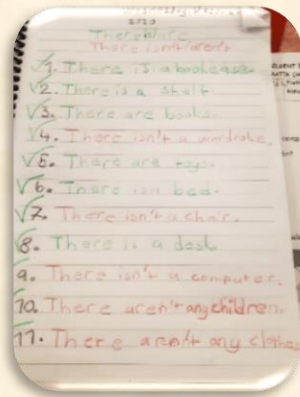 There is/are
There isn't/aren't
1. There is a bookcase.
2. There is a shelf.
3. There are books.
4. There isn't a wardrobe.
5. There are toys.
6. There is a bed.
7. There isn't a chair.
8. There is a desk.
9. There isn't a computer.
10. There aren't any children.
11. There aren't any clothes